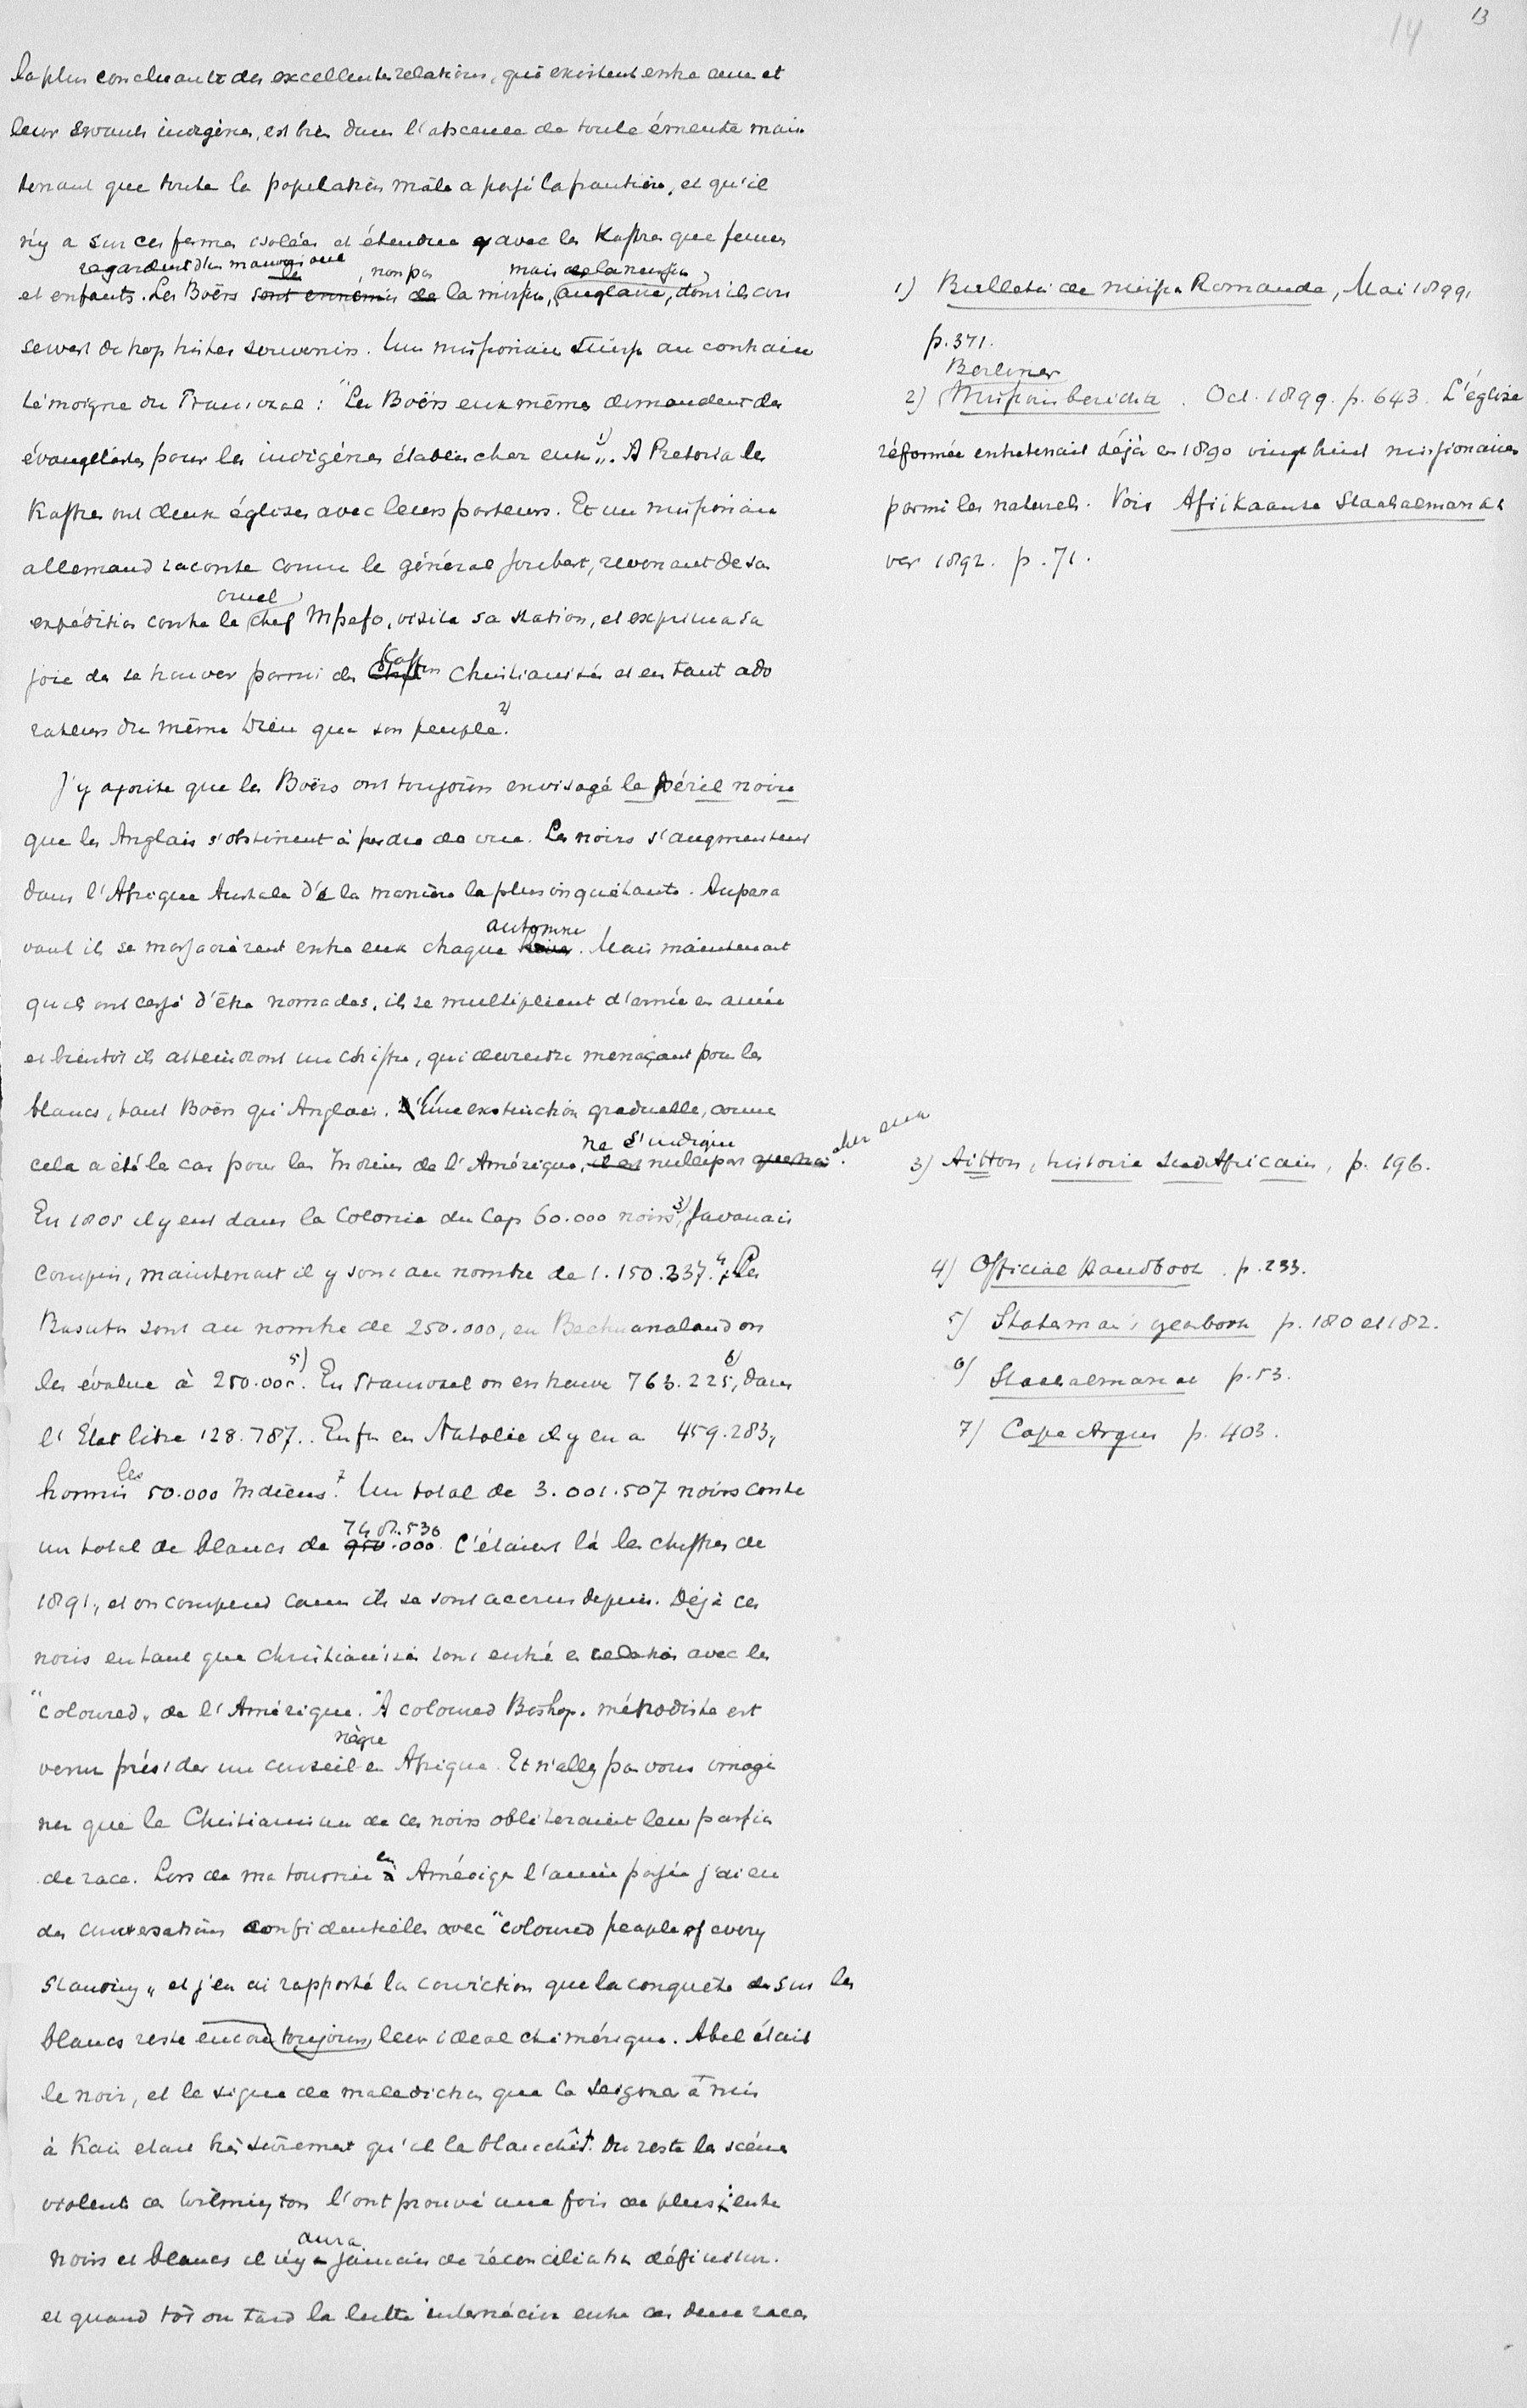 14
13
la plus concluante des excellentes relations, qui existent entre eux et
leur servants indigènes, est bien dans l'absence de toute émeute main
tenant que toute la population mâle a passé la frontière, et qu'il
n'y a sur ces fermes isolées et étendues avec les Kaffres que femmes
regardent d'un mauvais oeil, non pas mais de la mission
et enfants. Les Boërs sont ennemis de la mission, anglaise, dont ils con
servent de trop tristes souvenirs. Un missionaire suisse au contraire
témoigne du Transvaal: "Les Boërs eux mêmes demandent des
évangélistes pour les indigènes établis chez eux 1)„. A Pretoria les
Kaffres ont deux églises avec leurs pasteurs. Et un missionaire
allemand raconte comme le général Joubert, revenant de sa
cruel
expédition contre le chef Mpefo, visita sa station, et exprima sa
Kaffres
joie de se trouver parmi des christianisés et en tant ado
rateurs du même Dieu que son peuple 2).
J'y ajoute que les Boërs ont toujours envisagé le péril noir
que les Anglais s'obstinent à perdre de vue. Les noirs s'augmentent
dans l'Afrique Australe de la manière la plus inquiétante. Aupara
automne
vant ils se massacrèrent entre eux chaque. Mais maintenant
qu'ils ont cessé d'être nomades, ils se multiplient d'année en année
et bientôt ils atteindront un chiffre, qui deviendra menaçant pour les
blancs, tant Boërs qu'Anglais. Une extinction graduelle, comme
ne s'indique chez eux
cela a été le cas pour les Indiens de l'Amérique, il est nullepart
En 1805 il y eut dans la Colonie du Cap 60.000 noirs 3), Javanais
compris, maintenant il y sont au nombre de 1.150.237. 4 Les
Basutos sont au nombre de 250.000, en Bechuanaland on
les évalue à 250.000 5). En Transvaal on en trouve 763.225 6), dans
l'État libre 128.787.. Enfin en Natalie il y en a 459.283,
les
hormis 50.000 Indiens 7. Un total de 3.001.507 noirs contre
748.536
un total de blancs de 950.000. C'étaient là les chiffres de
1891, et on comprend comme ils se sont accrus depuis. Déjà ces
noirs en tant que christianisés sont entré en relation avec les
"coloured„ de l'Amérique. "A coloured Bishop„ méthodiste est
nègre
venu présider un conseil en Afrique. Et n'allez pas vous imagi
ner que le Christianisme de ces noirs obliteraient leur passion
en
de race. Lors de ma tournée à Amérique l'année passée j'ai eu
des conversations confidentielles avec "coloured people of every
standing„ et j'en ai rapporté la conviction que la conquête sur les
blancs reste encore toujours leur ideal chimérique. Abel était
le noir, et le signe de malediction que le Seigneur a mis
à Kaïn etait très sûrement qu'il le blanchît. Du reste les scènes
violents de Wilmington l'ont prouvé une fois de plus: entre
aura
noirs et blancs il n'y a jamais de réconciliation définitive.
et quand tôt ou tard la lutte internécine entre ces deux races
1) Bulletin de mission Romande, Mai 1899,
p. 371.
Berliner
2) Missionsberichte. Oct. 1899. p. 643. L'église
réformée entretenait déjà en 1890 vingt huit missionaires
parmi les naturels. Voir Afrikaanse Staatsalmanak
voor 1892. p. 71.
3) Aitton, histoire Sud Africain, p. 196.
4) Official Handbook. p. 233.
5) Statsman's yearbook p. 180 et 182.
6) Staatsalmanac p. 53.
7) Cape Argus p. 403.